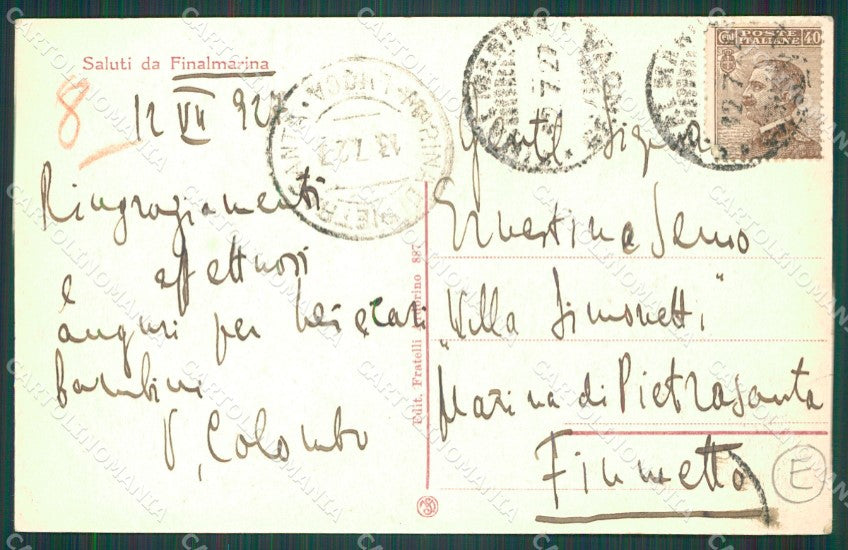 Saluti da Finalmarina
8
12 VII 927
Ringraziamenti
affettuosi
e
auguri per lei e cari
bambini
V. Colombo
Edit. Fratelli 887
POSTE ITALIANE
Cent. 40
MARINA DI PIETRASANTA · LUCCA
13.7.27
7.27
12.7
Gentil Signora
Ernestina
"Villa Simonetti"
Marina di Pietrasanta
Fiumetto
E
CARTOLINOMANIA